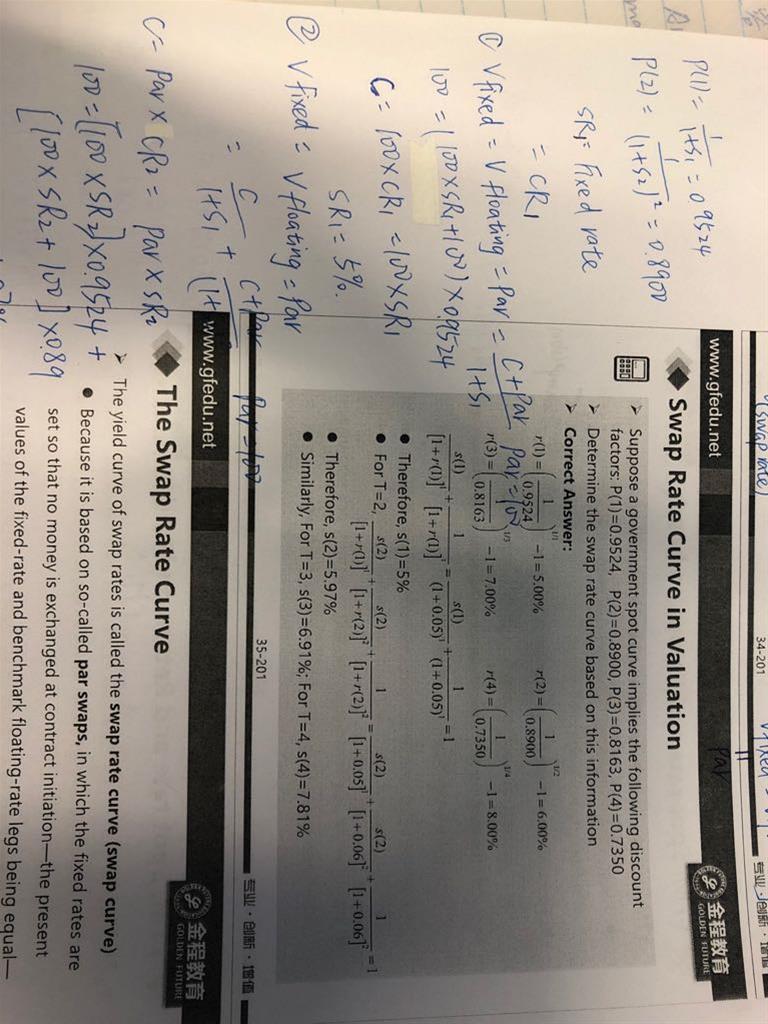 34-201
专业·创新·增值
www.gfedu.net
金程教育
GOLDEN FUTURE
Par
Swap Rate Curve in Valuation
➢ Suppose a government spot curve implies the following discount
factors: P(1)=0.9524, P(2)=0.8900, P(3)=0.8163, P(4)=0.7350
➢ Determine the swap rate curve based on this information
➢ Correct Answer:
r(1)=(1/0.9524)^{1/1}−1=5.00% r(2)=(1/0.8900)^{1/2}−1=6.00%
r(3)=(1/0.8163)^{1/3}−1=7.00% r(4)=(1/0.7350)^{1/4}−1=8.00%
s(1)/[1+r(1)]^1+1/[1+r(1)]^1=s(1)/(1+0.05)^1+1/(1+0.05)^1=1
• Therefore, s(1)=5%
• For T=2, s(2)/[1+r(1)]^1+s(2)/[1+r(2)]^2+1/[1+r(2)]^2=s(2)/[1+0.05]^1+s(2)/[1+0.06]^2+1/[1+0.06]^2=1
• Therefore, s(2)=5.97%
• Similarly, For T=3, s(3)=6.91%; For T=4, s(4)=7.81%
35-201
专业·创新·增值
www.gfedu.net
金程教育
GOLDEN FUTURE
The Swap Rate Curve
➢ The yield curve of swap rates is called the swap rate curve (swap curve)
• Because it is based on so-called par swaps, in which the fixed rates are
set so that no money is exchanged at contract initiation—the present
values of the fixed-rate and benchmark floating-rate legs being equal—
(swap rate)
P(1)=1/1+S1=0.9524
P(2)=1/(1+S2)^2=0.8900
SR1=Fixed rate
=CR1
① V fixed = V floating = Par = C+Par/1+S1 Par=100
100=(100×SR1+100)×0.9524
C=100×CR1=100×SR1
SR1=5%.
② V fixed = V floating = Par
=C/1+S1+C+Par/(1+ Par=100
C=Par×CR2=Par×SR2
100=[100×SR2]×0.9524+
[100×SR2+100]×0.89